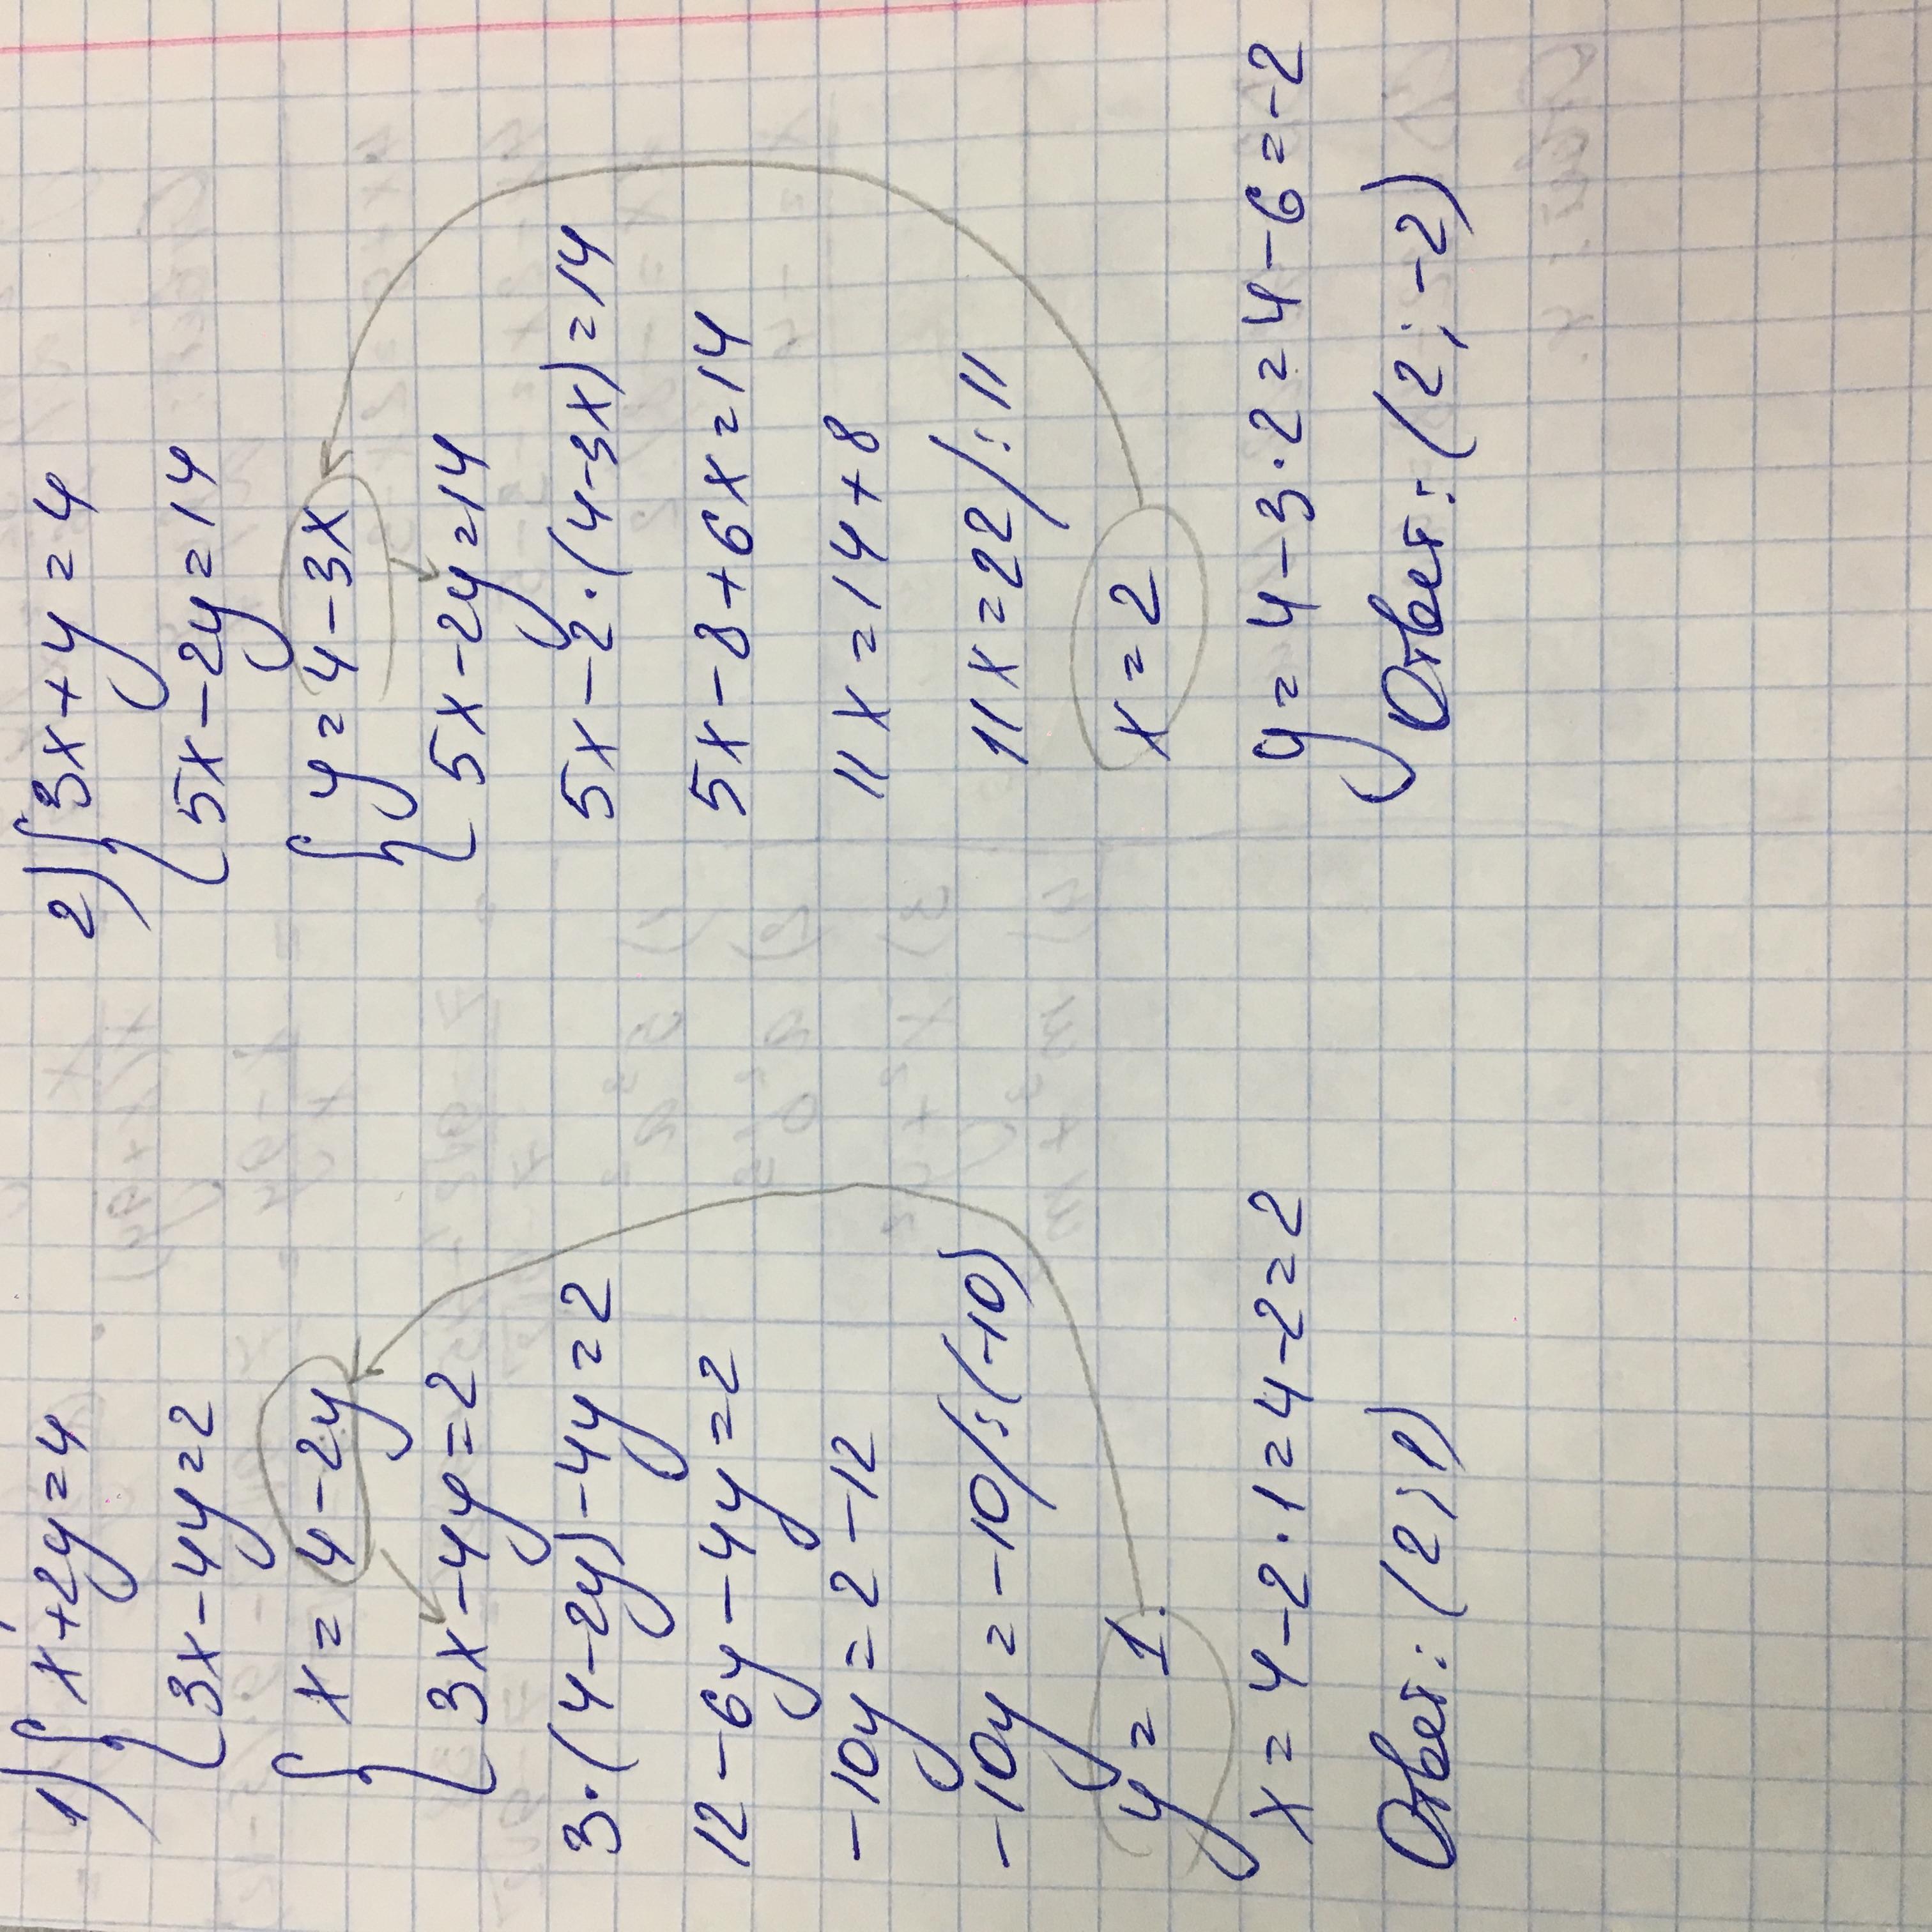 1) { x+2y=4
3x-4y=2
{ x=4-2y
3x-4y=2
3·(4-2y)-4y=2
12-6y-4y=2
-10y=2-12
-10y=-10/:(-10)
y=1
x=4-2·1=4-2=2
Ответ: (2;1)
2) { 3x+y=4
5x-2y=14
{ y=4-3x
5x-2y=14
5x-2·(4-3x)=14
5x-8+6x=14
11x=14+8
11x=22/:11
x=2
y=4-3·2=4-6=-2
Ответ: (2;-2)